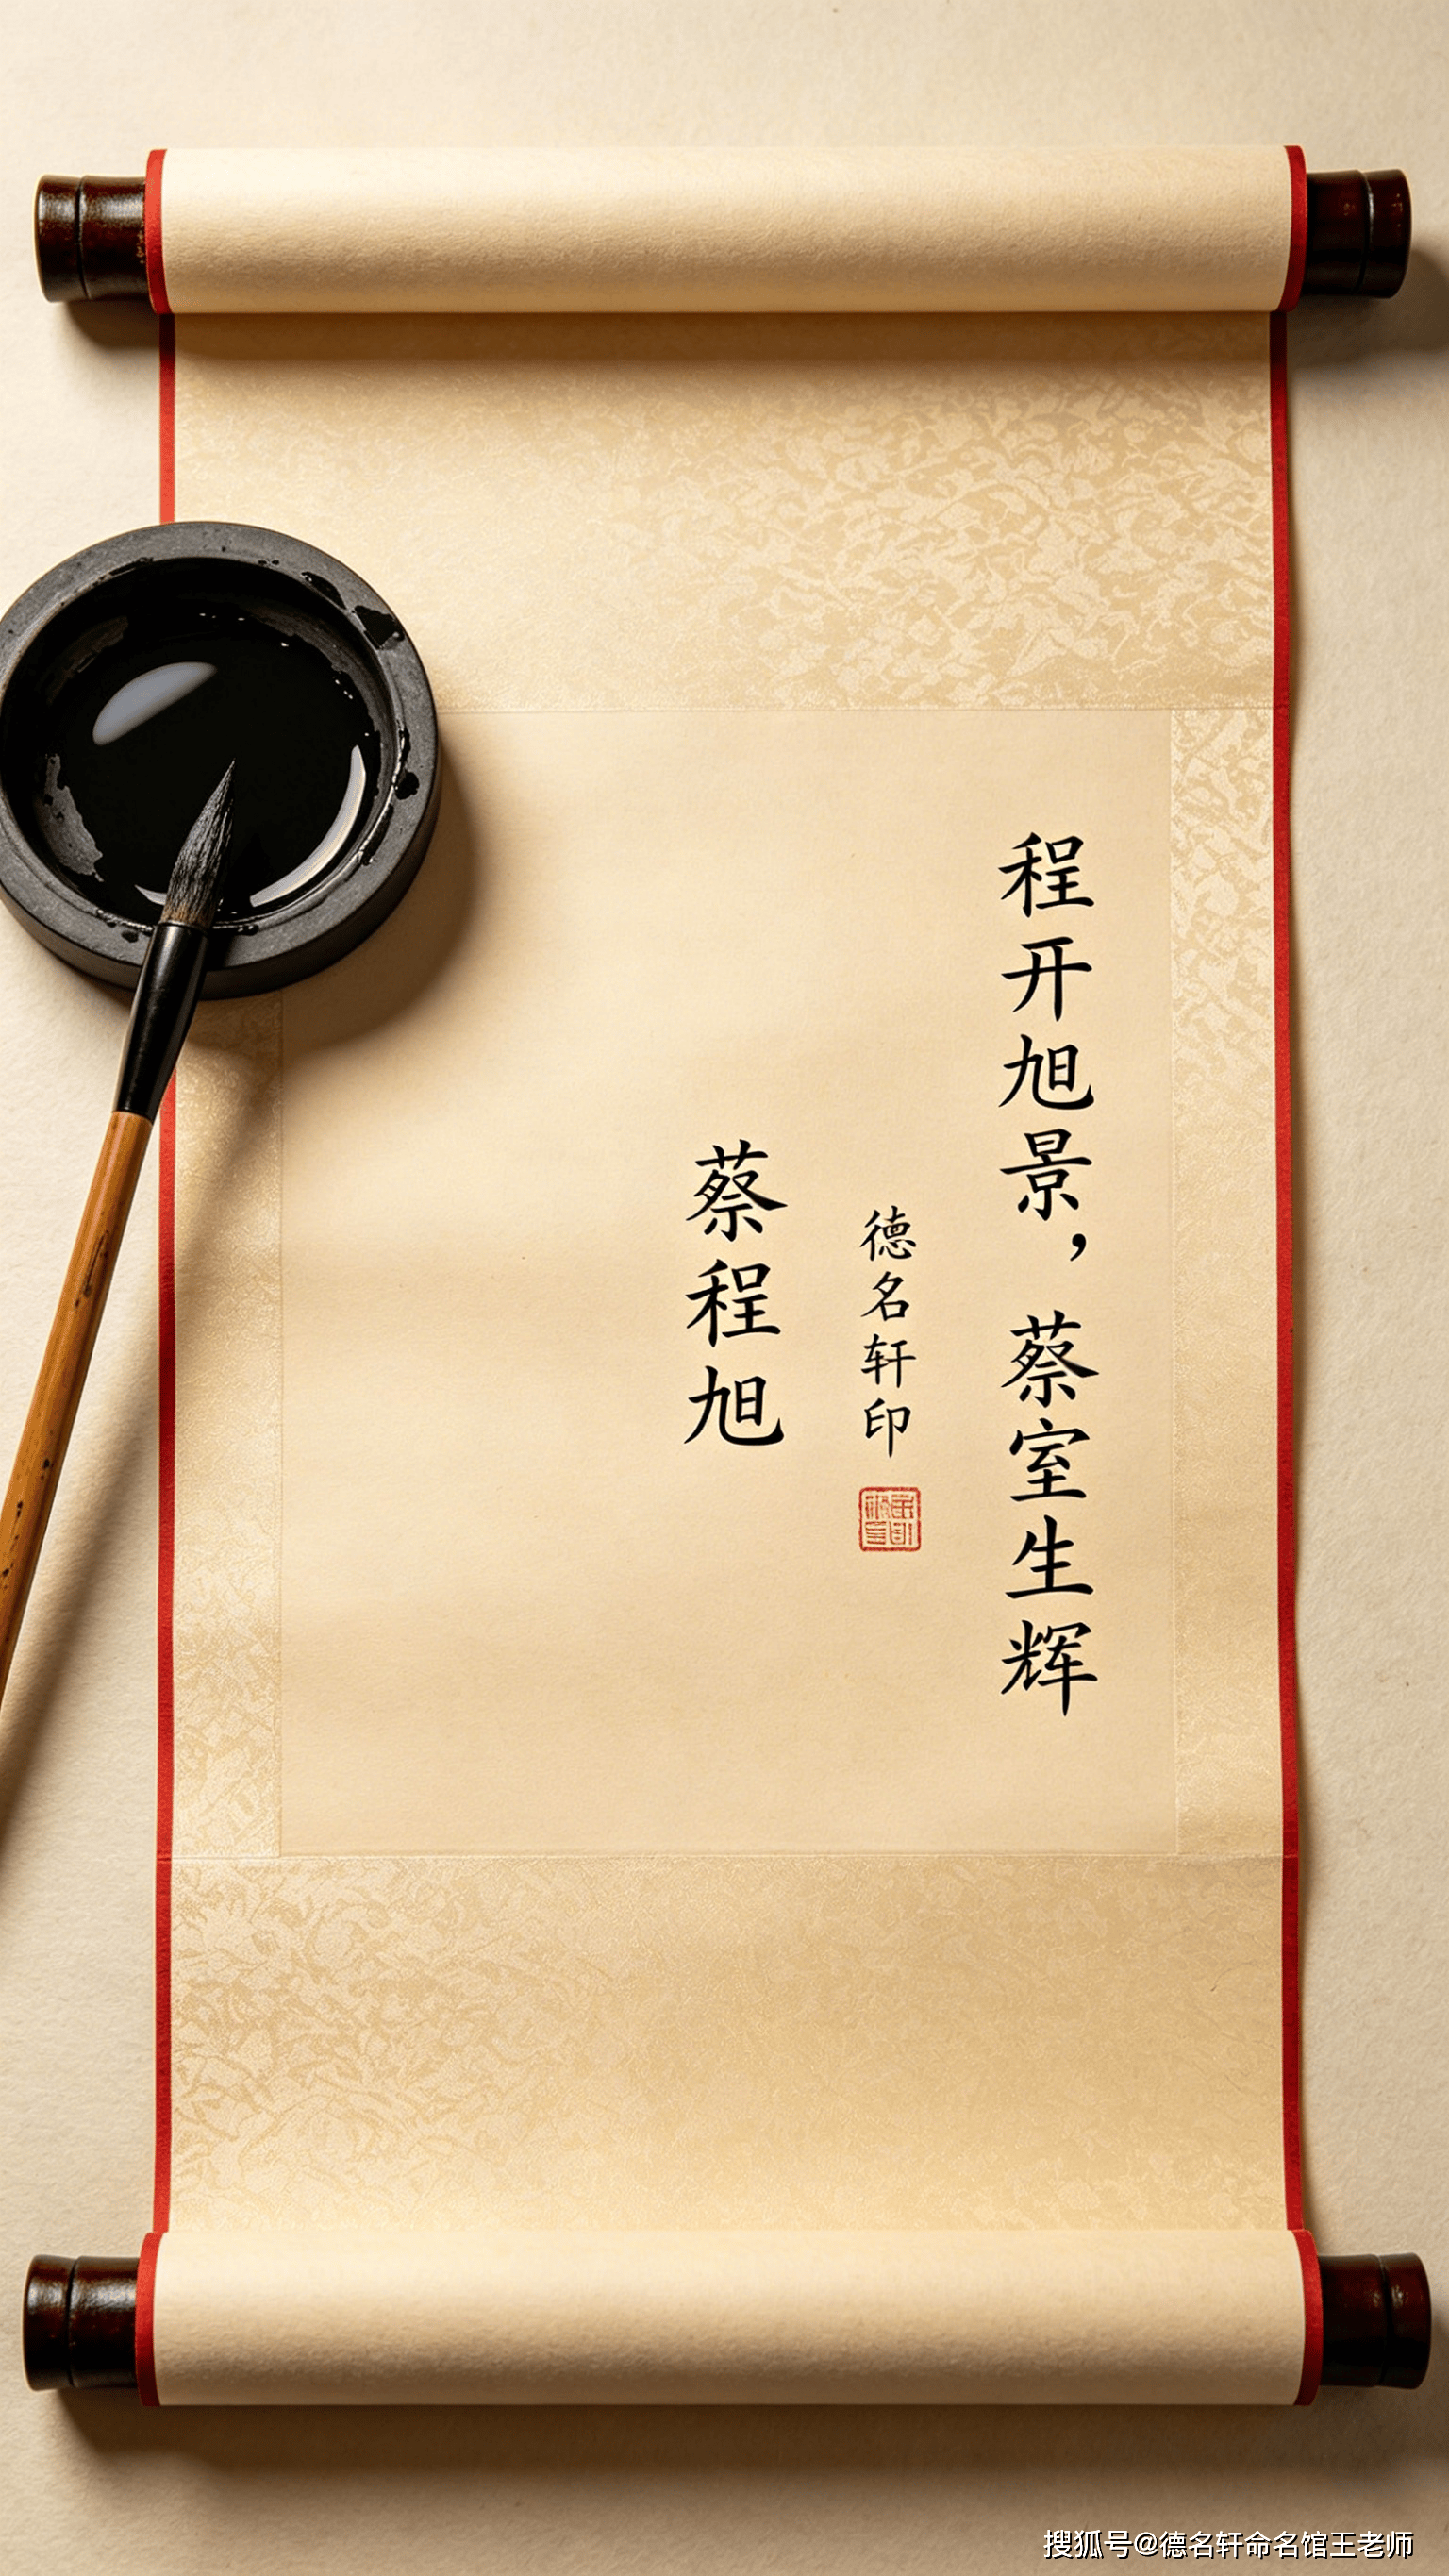 程开旭景，蔡室生辉
德名轩印
蔡程旭
搜狐号@德名轩命名馆王老师